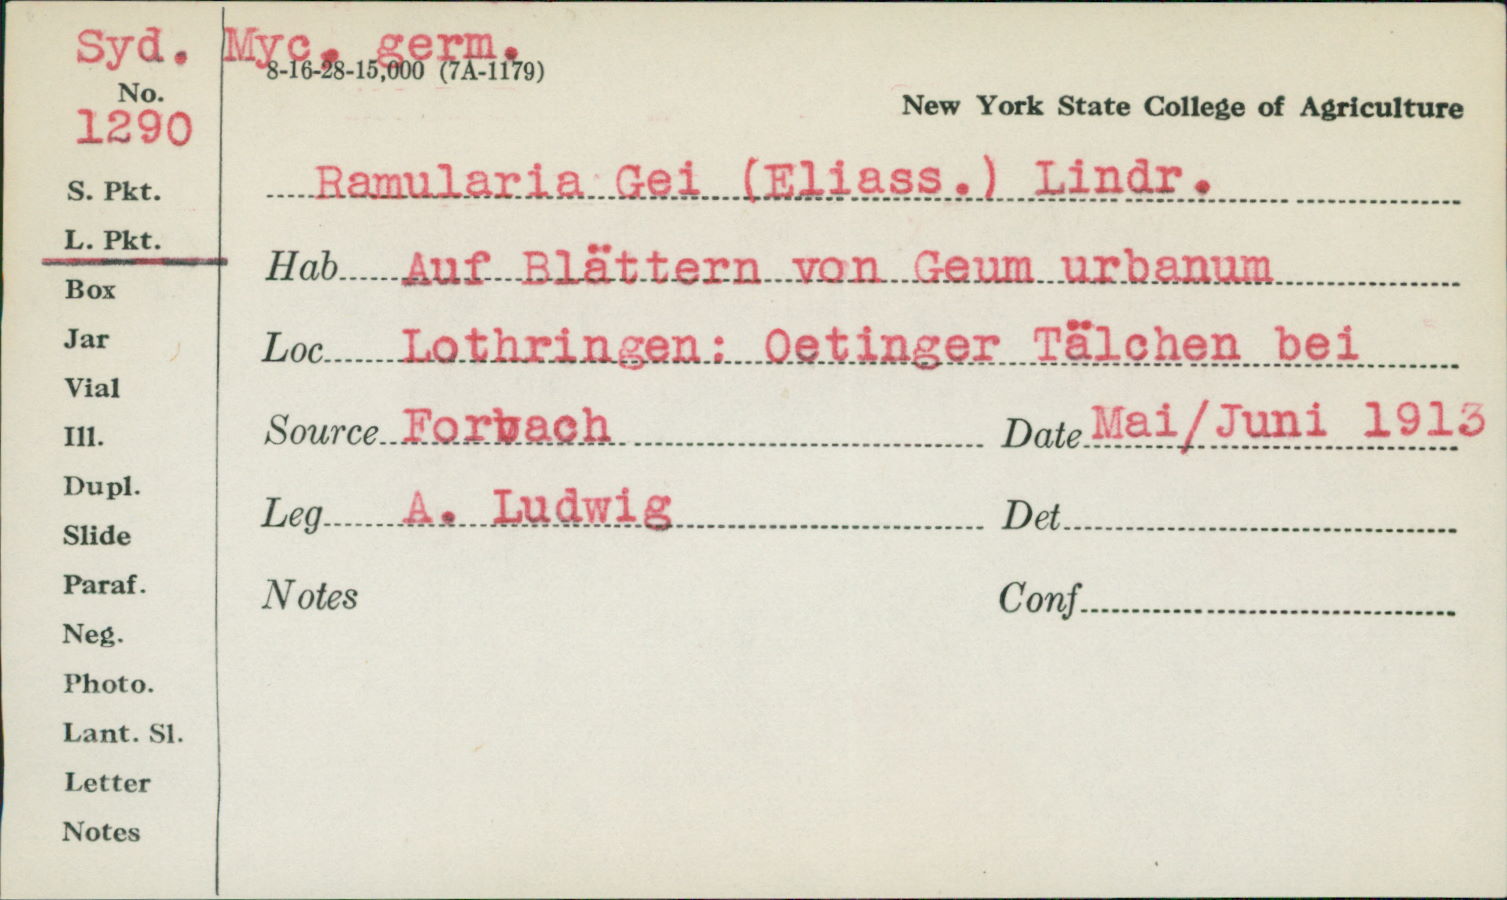 Syd. Myc. germ.
8-16-28-15,000 (7A-1179)
No.
1290
New York State College of Agriculture
Ramularia Gei (Eliass.) Lindr.
S. Pkt.
L. Pkt.
Hab Auf Blättern von Geum urbanum
Box
Jar
Loc Lothringen: Oetinger Tälchen bei
Vial
Ill.
Source Forbach Date Mai/Juni 1913
Dupl.
Slide
Leg A. Ludwig Det
Paraf.
Notes Conf
Neg.
Photo.
Lant. Sl.
Letter
Notes